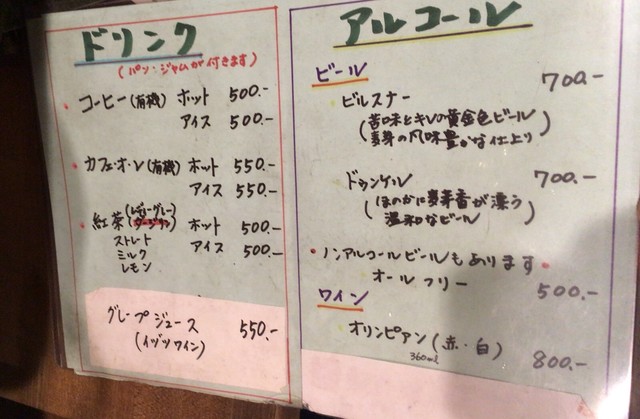 ドリンク
(パン・ジャムが付きます)
・コーヒー(有機) ホット 500.-
アイス 500.-
・カフェ・オ・レ(有機) ホット 550.-
アイス 550.-
・紅茶(レディーグレー) ホット 500.-
ストレート アイス 500.-
ミルク
レモン
グレープジュース 550.-
(イヅツワイン)
アルコール
ビール 700.-
ビルスナー
(苦味とキレの黄金色ビール
麦芽の風味豊かな仕上り)
ドゥンケル 700.-
(ほのかに麦芽香が漂う
温和なビール)
・ノンアルコールビールもあります・
オールフリー 500.-
ワイン
オリンピアン(赤・白) 800.-
360ml